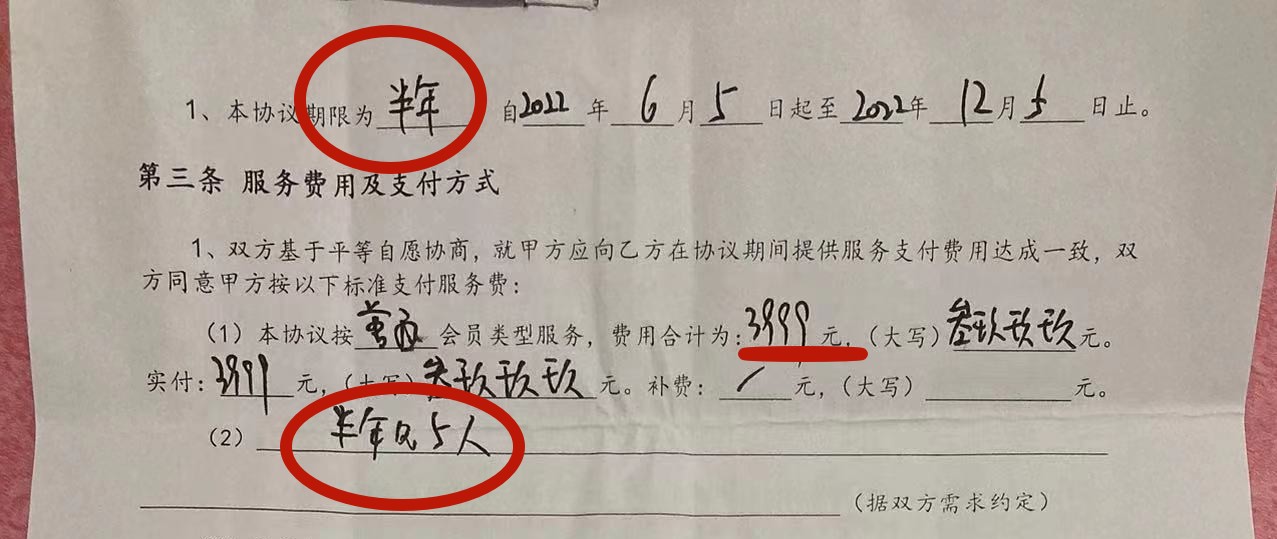 1、本协议期限为半年 自2022年6月5日起至2022年12月5日止。
第三条 服务费用及支付方式
1、双方基于平等自愿协商，就甲方应向乙方在协议期间提供服务支付费用达成一致，双
方同意甲方按以下标准支付服务费：
（1）本协议按会员类型服务，费用合计为：3999元，（大写）叁玖玖玖元。
实付：3999元，（大写）叁玖玖玖元。补费：/元，（大写）元。
（2）半年见5人
（据双方需求约定）